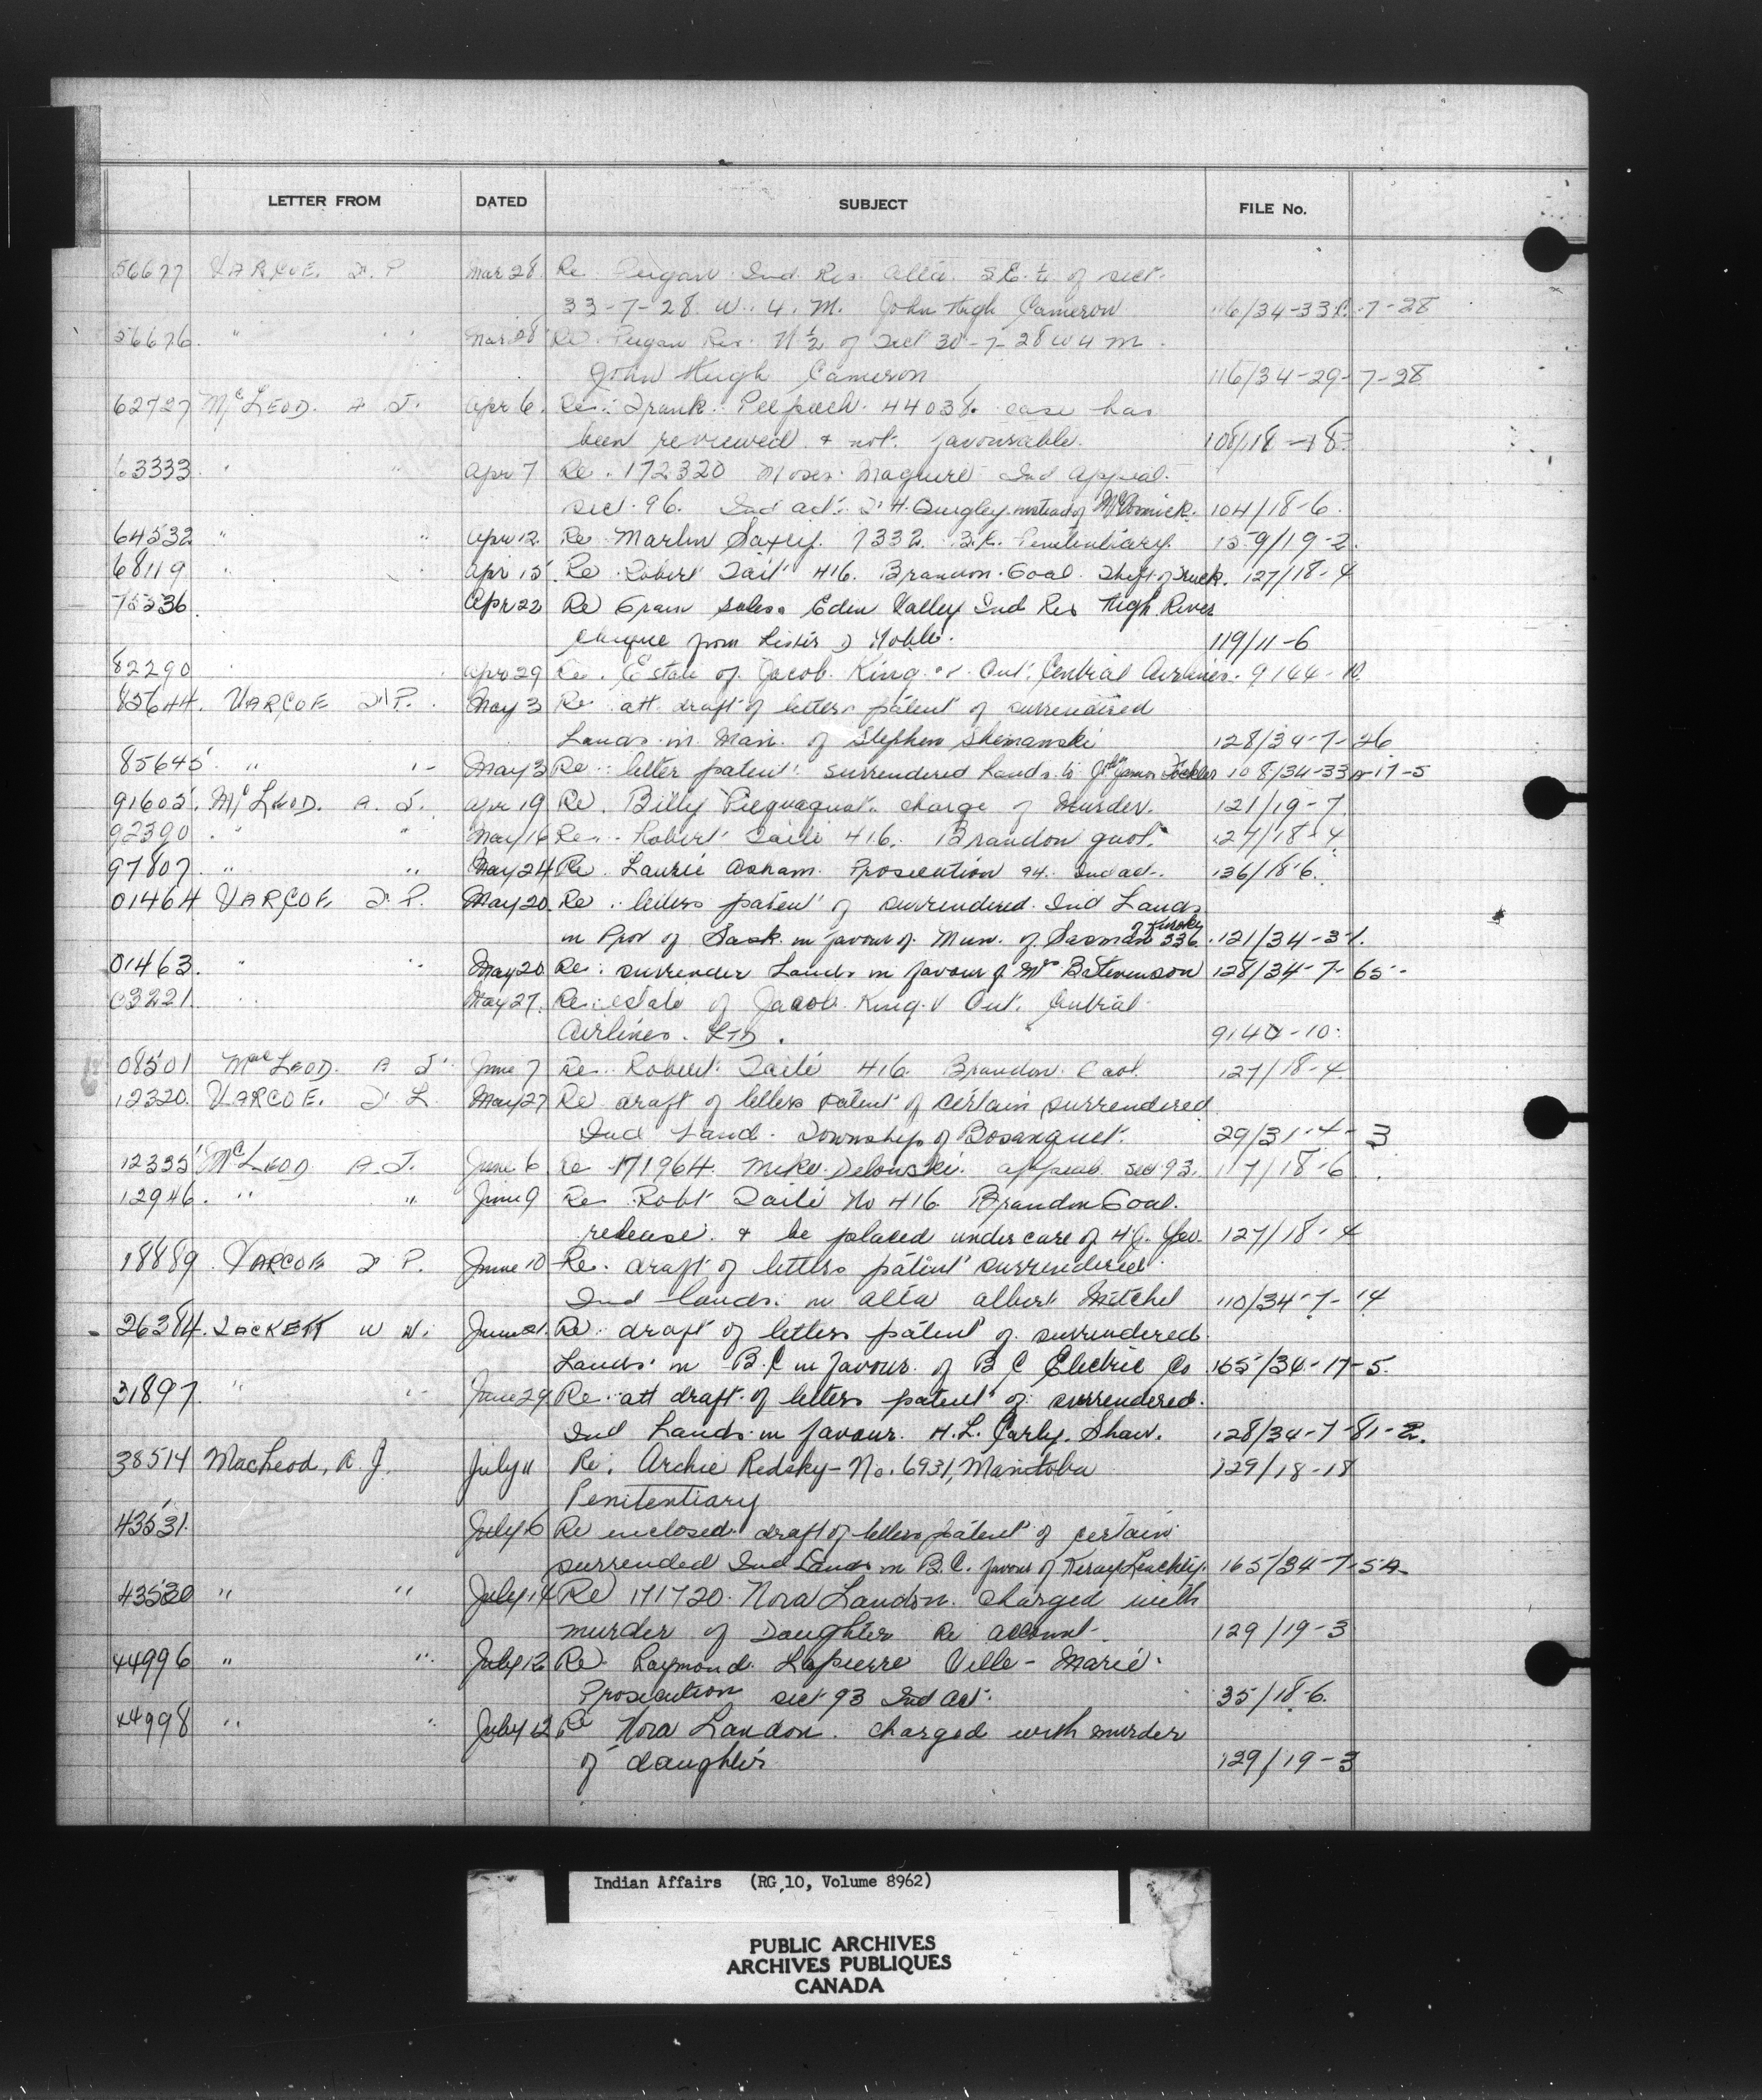 LETTER FROM DATED SUBJECT FILE No.
56677 VARCOE. F. P. Mar 28 Re Peigan Ind Res Alta. S.E. ¼ of sect.
33-7-28 W. 4. M. John Hugh Cameron 116/34-33-7-28
56676 " " Mar 28 Re Peigan Res. N ½ of Sect 30-7-28 W 4 M.
John Hugh Cameron 116/34-29-7-28
62727 McLEOD. A. J. Apr 6. Re: Frank 44038. case has
been reviewed & not favourable. 108/18-18
63333. " " Apr 7 Re. 172320 Moses Maguire Ind Appeal.
sect. 96. Ind act. Quigley instead of McComick. 104/18-6.
64532 " " Apr 12. Re Martin Saxey. 7332 B.C. Penitentiary. 159/19-2.
68119 " " Apr 15. Re Robert Tait 416. Brandon Goal. Theft of Truck. 127/18-4
75336. Apr 22 Re Grain sales Eden Valley Ind Res High River
cheque from Lister D Noble. 119/11-6
82290 Apr 29 Re. Estate of Jacob King vs Ont. Central Airlines. 9144-10.
85644. VARCOE F. P. May 3 Re att draft of letters patent of surrendered
Lands in Man. of Stephen Shemanski 128/34-7-26
85645 " " May 3 Re letter patent surrendered Lands to James 108/34-33-17-5
91605. McLEOD. A. J. Apr 19 Re. Billy charge of Murder. 121/19-7.
92390. " " May 16 Re Robert Taite 416. Brandon gaol. 127/18-4
97807. " " May 24 Re Laurie Asham. Prosecution 94. Ind act. 136/18-6.
01464 VARCOE F. P. May 20. Re letters patent of surrendered Ind Lands
of Kinoky
in Prov of Sask. in favour of Mun. of Sasman 336. 121/34-31.
01463. " " May 20 Re: surrender Lands in favour of Mr B Stevenson 128/34-7-65-
03221 " " May 27. Re: estate of Jacob King V Ont. Central
Airlines. LTD. 9144-10.
08501 MacLEOD. A J. June 7 Re. Robert Taite 416 Brandon Gaol. 127/18-4.
12320. VARCOE. F L. May 27 Re draft of letters patent of certain surrendered
Ind Land. Township of Bosanquet. 29/31-4-3
12335 McLEOD A. J. June 6 Re 171964. Mike Delowski. appeal sec 93. 117/18-6.
12946. " " June 9 Re Robt Taite No 416 Brandon Goal.
release & be placed under care of 127/18-4
18889 VARCOE F P. June 10 Re. draft of letters patent surrendered
Ind lands in Alta Albert Mitchel 110/34-7-14
26384. JACKETT W W. June 21. Re. draft of letters patent of surrendered
Lands in B.C in favour of B C Electric Co 165/34-17-5.
31897. " " June 29 Re att draft of letters patent of surrendered.
Ind Lands in favour. H. L. Carly. Shaw. 128/34-7-81-2.
38514 MacLeod, A. J. July 11 Re. Archie Redsky-No. 6931, Manitoba 129/18-18
Penitentiary
43531. July 6 Re enclosed draft of letters patent of certain
surrended Ind Lands in B.C. favour of 165/34-7-5A
43530 " " July 14 Re 171720. Nora Landon. Charged with
murder of Daughter Re account. 129/19-3
44996 " " July 12 Re Raymond Lapierre Ville-Marie.
Prosecution sect 93 Ind Act. 35/18-6.
44998 " " July 12 Re Nora Landon. charged with murder
of daughter 129/19-3
Indian Affairs (RG 10, Volume 8962)
PUBLIC ARCHIVES
ARCHIVES PUBLIQUES
CANADA